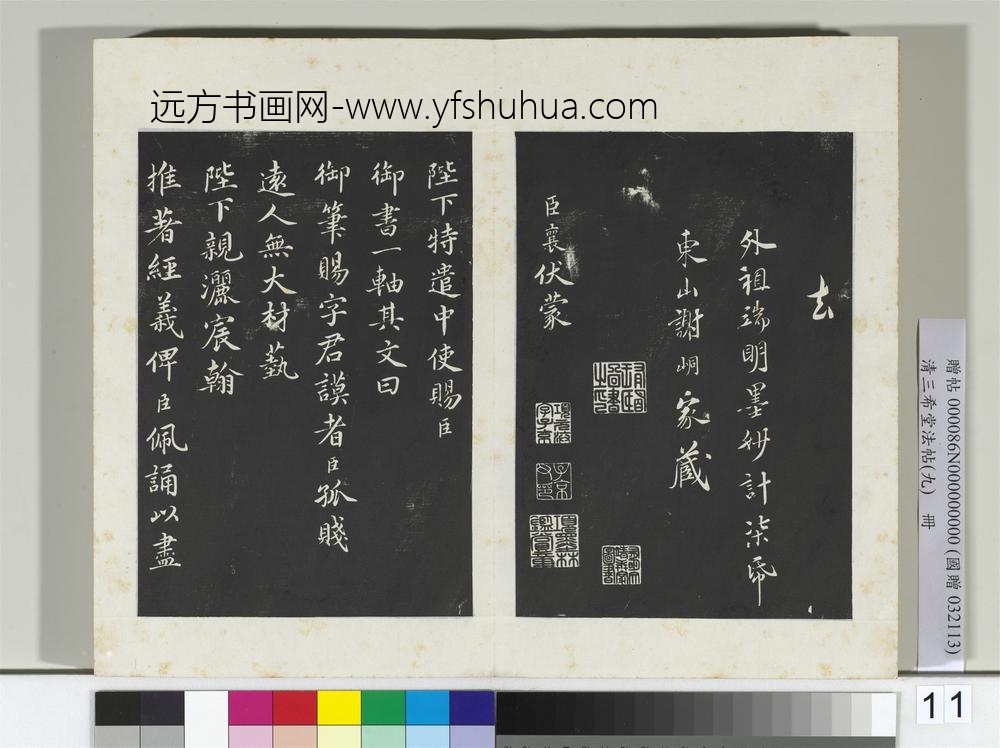 远方书画网-www.yfshuhua.com
去
外祖端明墨妙計柒帋
東山謝峒家藏
臣襄伏蒙
陛下特遣中使賜臣
御書一軸其文曰
御筆賜字君謨者臣孤賤
遠人無大材藝
陛下親灑宸翰
推著經義俾臣佩誦以盡
項元汴
子京
項墨林
鑑賞章
贈帖 000086N000000000 (國贈 032113)
清三希堂法帖(九) 冊
11